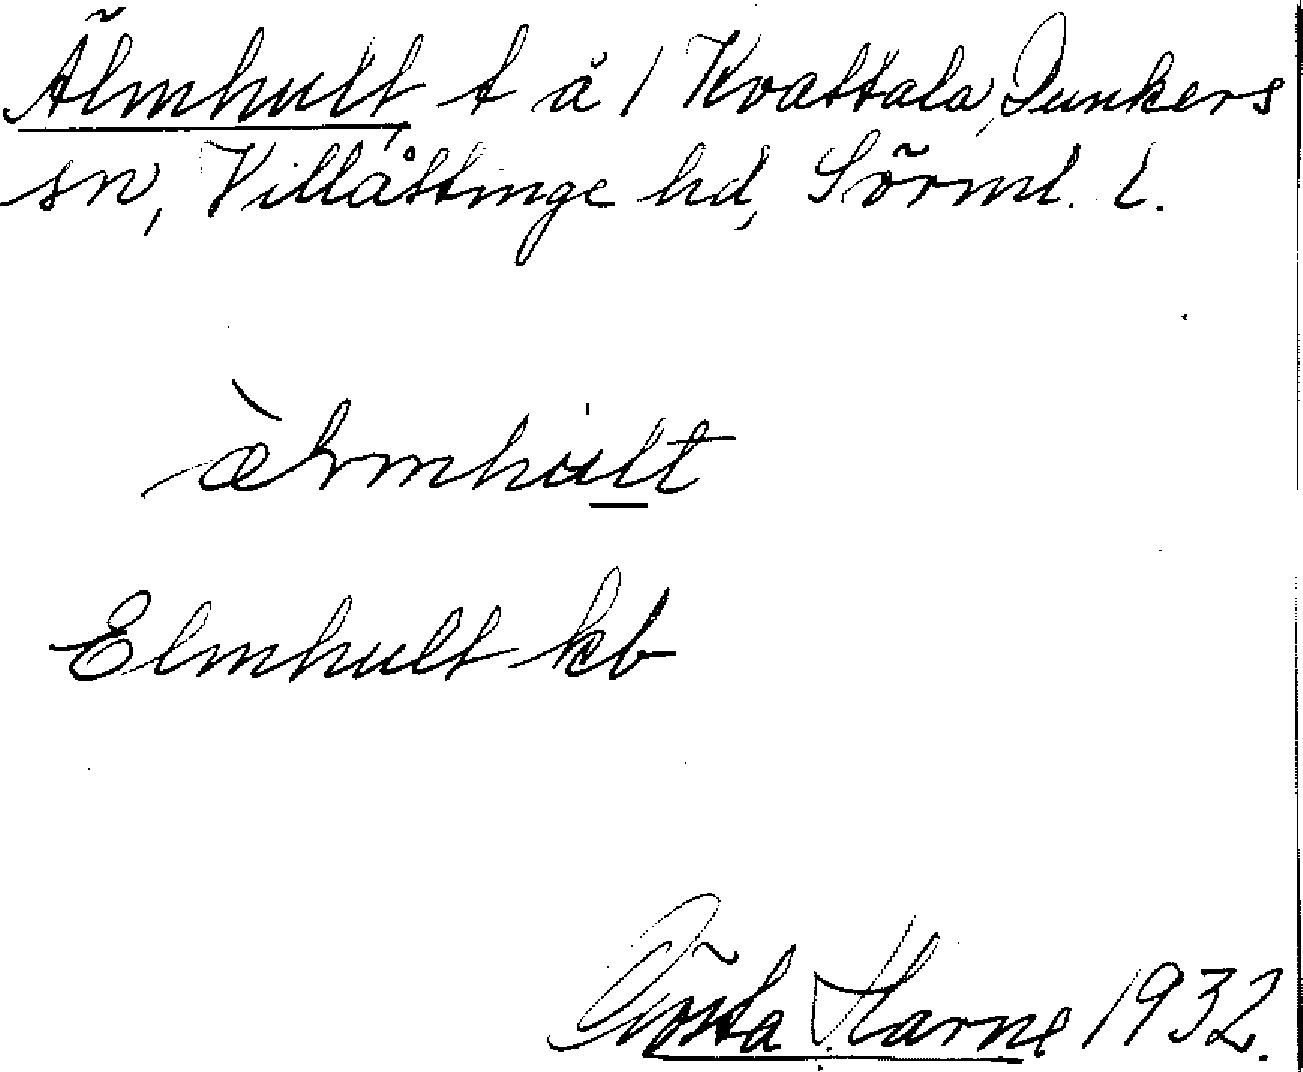 Älmhult, t å 1 Kvattala, Lunkers
sn, Villåttinge hd, Sörml. l.
æ̀lmhult
Elmhult kb
Gösta Harne 1932.